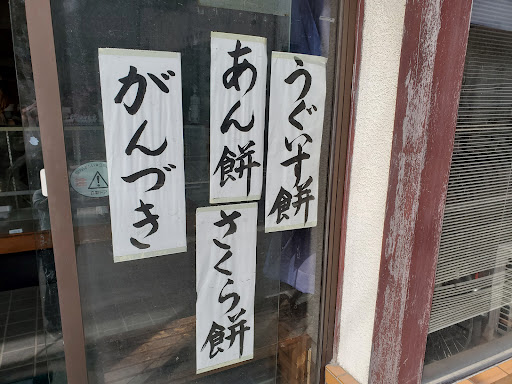 うぐいす餅
あん餅
さくら餅
がんづき